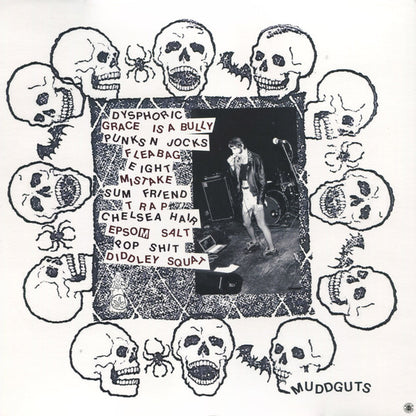 DYSPHORIC
GRACE IS A BULLY
PUNKS N JOCKS
FLEABAG
EIGHT
MISTAKE
SUM FRIEND
TRAP
CHELSEA HAIR
EPSOM SALT
POP SHIT
DIDDLEY SQUAT
MUDDGUTS